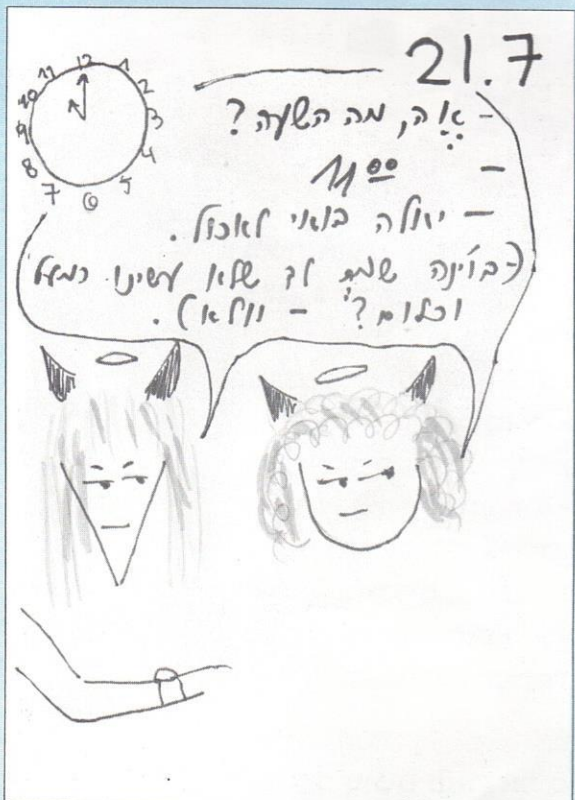 21.7
12
1
2
3
4
5
6
7
8
9
10
11
- או הו, מה השעה?
- 11⁰⁰
- יאללה בואי לאכול.
(בוז'ינה שמת לב שלא עשינו כמעט
וכלום? - וולא).